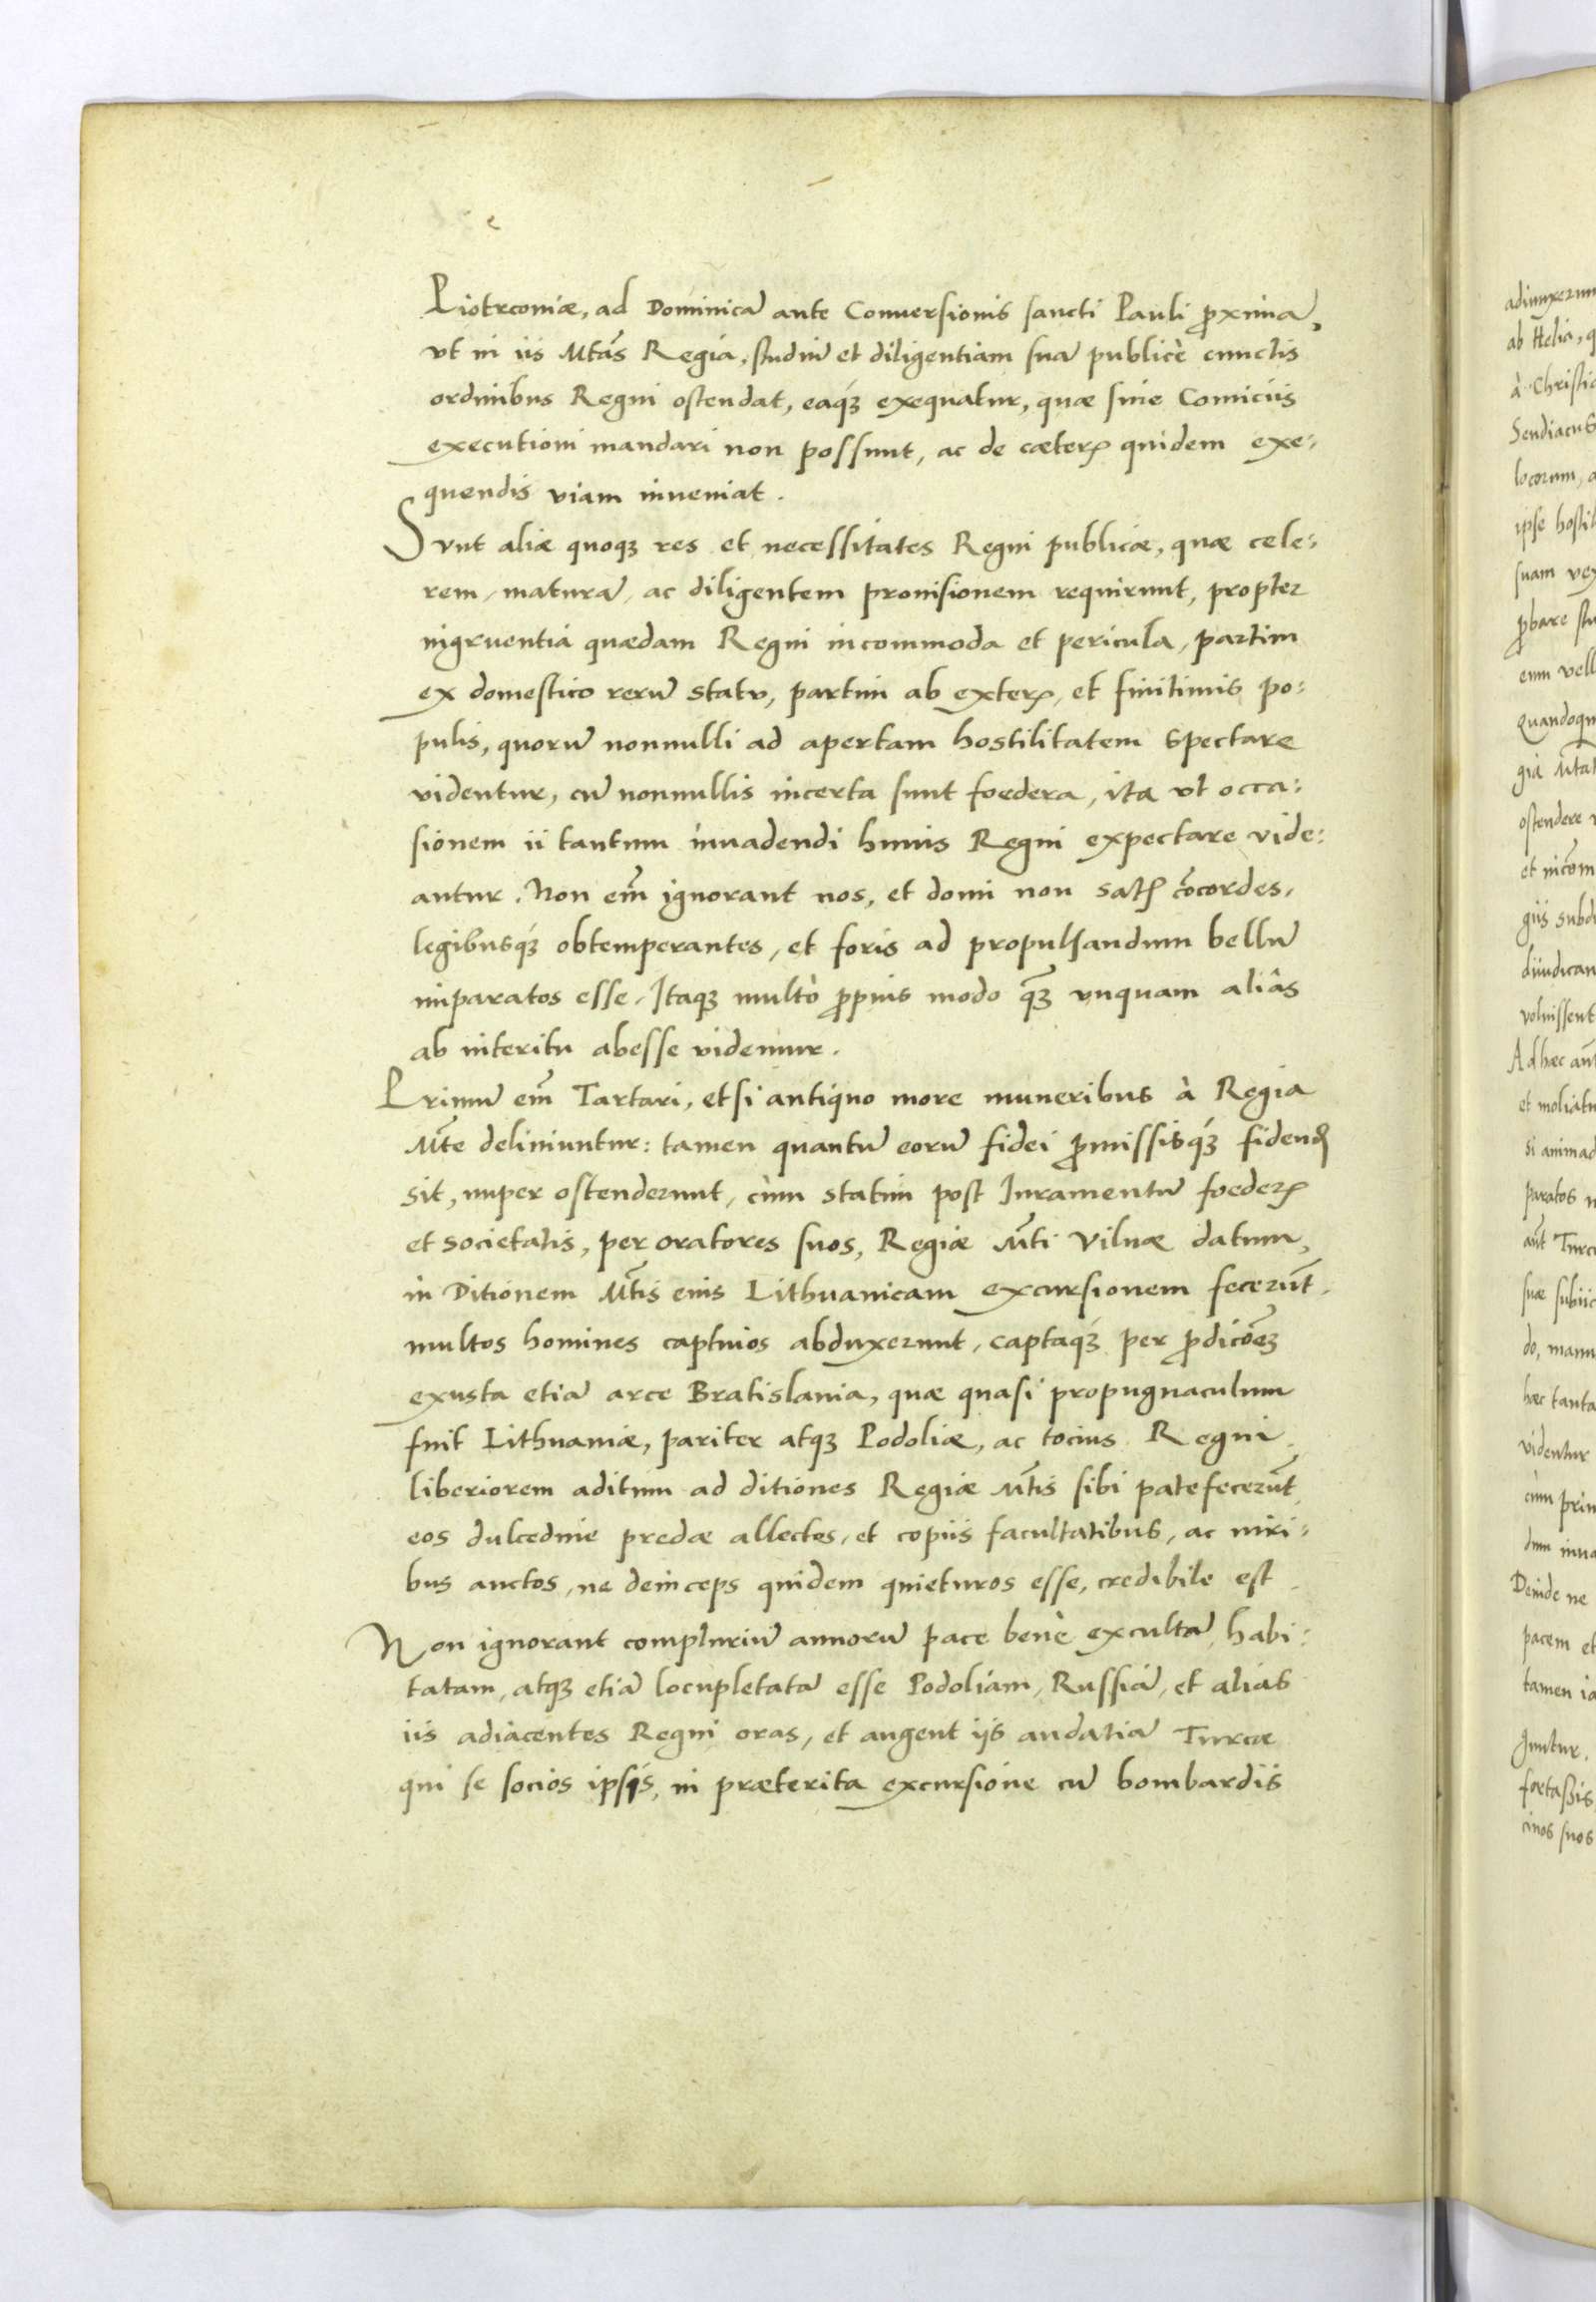 Piotrconiæ, ad Dominicā ante Conuersionis sancti Pauli ꝓximā,
vt in iis Mtās Regia, studiū et diligentiam suā publicè cunctis
ordinibus Regni ostendat, eaqꝫ exequatur, quæ sine Comiciis
executioni mandari non possunt, ac de cæterꝭ quidem exe:
quendis viam inueniat.
Sunt aliæ quoqꝫ res et necessitates Regni publicæ, quæ cele:
rem, maturā, ac diligentem prouisionem requirunt, propter
ingruentia quædam Regni incommoda et pericula, partim
ex domestico rerū statu, partim ab exterꝭ, et finitimis po:
pulis, quorū nonnulli ad apertam hostilitatem spectare
videntur, cū nonnullis incerta sunt foedera, ita vt occa:
sionem ii tantum inuadendi huius Regni expectare vide:
antur. Non em̄ ignorant nos, et domi non satꝭ cōcordes,
legibusqꝫ obtemperantes, et foris ad propulsandum bellū
imparatos esse, Itaqꝫ multò ꝓpius modo qꝫ̄ vnquam aliâs
ab interitu abesse videmur.
Primū em̄ Tartari, etsi antiquo more muneribus à Regia
Mt̄e deliniuntur: tamen quantū eorū fidei ꝓmissisqꝫ fidendꝭ
sit, nuper ostenderunt, cùm statim post Iuramentū foederꝭ
et societatis, per oratores suos, Regiæ Mt̄i Vilnæ datum,
in Ditionem Mt̄is eius Lithuanicam excursionem fecerūt.
multos homines captiuos abduxerunt, captaqꝫ per ꝓdicōeꝫ
exusta etiā arce Bratislauia, quæ quasi propugnaculum
fuit Lithuaniæ, pariter atqꝫ Podoliæ, ac tocius Regni,
liberiorem aditum ad ditiones Regiæ Mt̄is sibi patefecerūt,
eos dulcedine predæ allectos, et copiis facultatibus, ac viri:
bus auctos, ne deinceps quidem quieturos esse, credibile est.
Non ignorant compluriū annorū pace benè excultā, habi:
tatam, atqꝫ etiā locupletatā esse Podoliam, Russiā, et alias
iis adiacentes Regni oras, et augent iis audatiā Turcæ
qui se socios ipsis, in præterita excursione cū bombardis